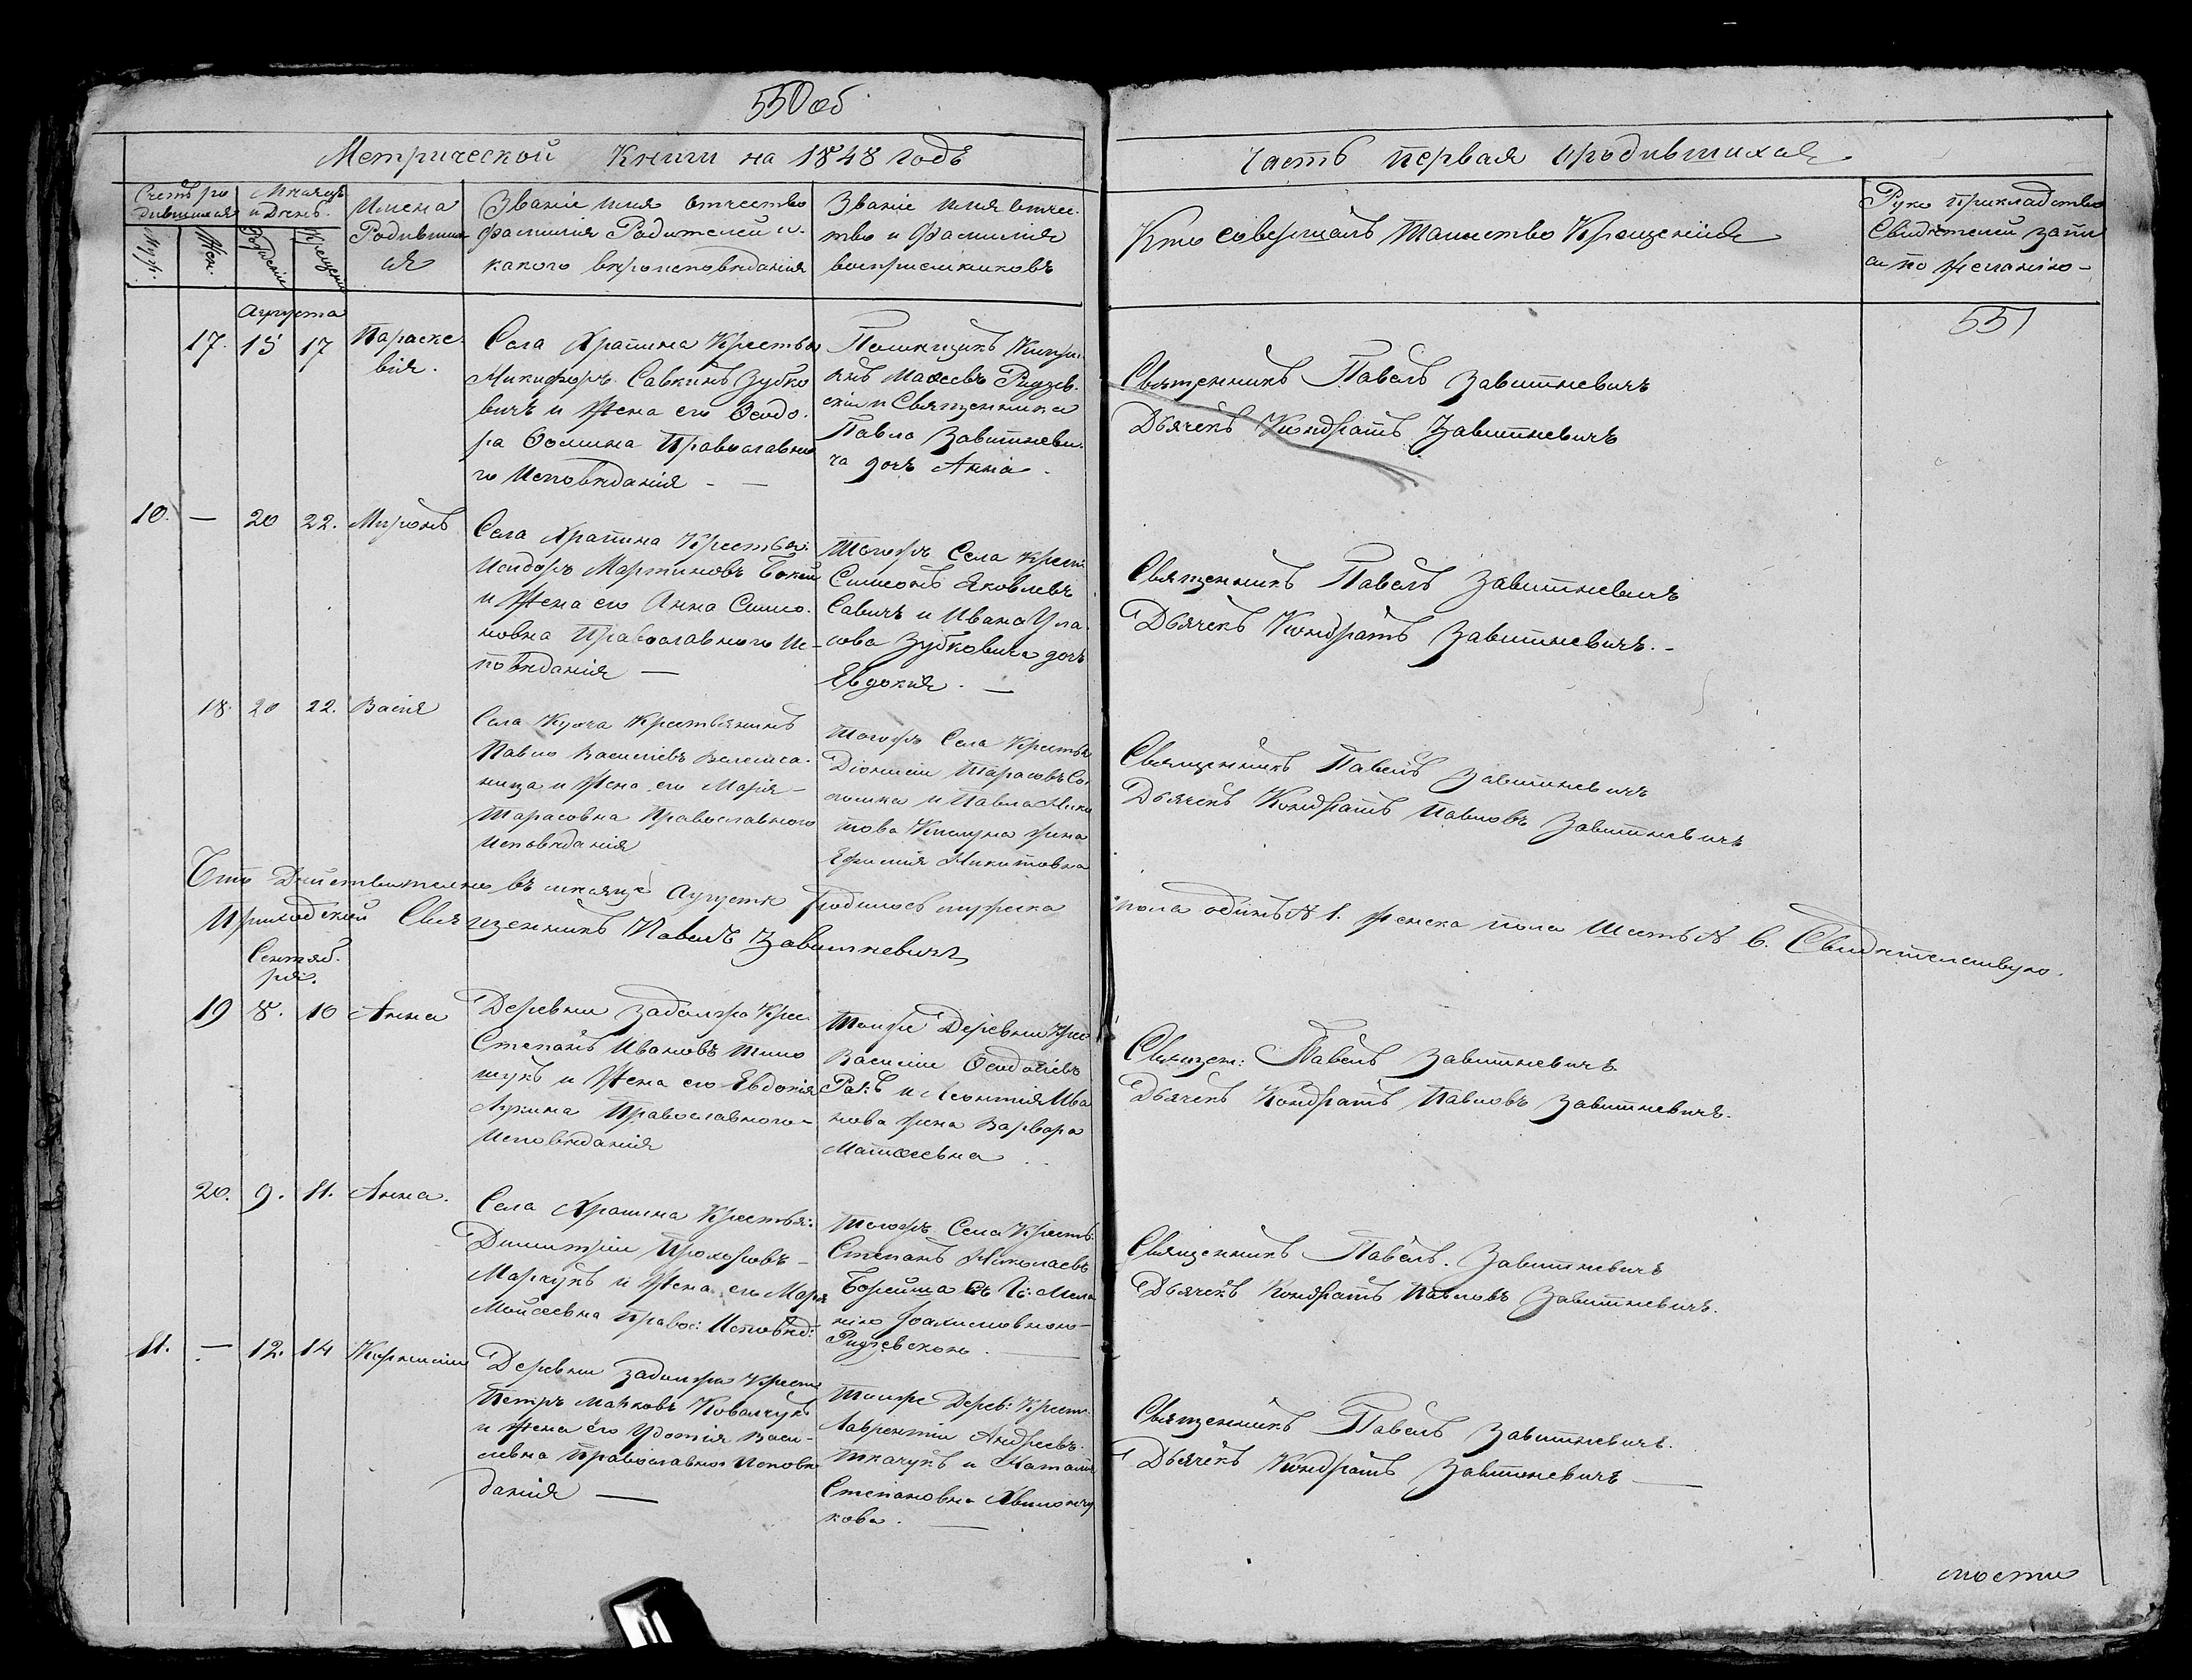 550 об
Метрической Книги на 1848 Годъ
Часть первая о родившихся
Счетъ ро
дившихся
Муж:
Жен.
Мѣсяцъ
и День.
Рожденія
Крещенія
Имена
Родивших
ся
Званіе имя отчество
фамилія Родителей и
какого вѣроисповѣданія
Званіе имя отчес-
тво и Фамилія
воспріемниковъ
Кто совершалъ Таинство Крещенія
Руко прикладство
Свидѣтелей запи
си по желанію
551
Августа
17. 15 17 Параске
вія.
Села Храпина Крестья
Никифоръ Савкинъ Зубко
вичъ и Жена его Ѳеодо
ра Ѳомина Православна
го Исповѣданія - —
Помѣщикъ Кипри
янъ Маѳеевъ Ридзев
скій и Священника
Павла Завитневи
ча дочь Анна -
Священникъ Павелъ Завитневичъ
Дьячекъ Кондратъ Завитневичъ
10. — 20 22. Миронъ
Села Храпина Крестья:
Исидоръ Мартиновъ
и Жена его Анна Симо
новна Православного Ис-
повѣданія —
Тогожъ Села Крест:
Симеонъ Яковлевъ
Савичъ и Ивана Ула
сова Зубковича дочь
Евдокія. —
Священникъ Павелъ Завитневичъ
Дьячекъ Кондратъ Завитневичъ. -
18. 20 22. Васія
Села Кухча Крестьянинъ
Павло Василіевъ
и Жена его Марія -
Тарасовна Православного
Исповѣданія
Тогожъ Села Крестья
Діонисій Тарасовъ
и Павла Ники
това жена
Ефимія Никитовна
Священникъ Павелъ Завитневичъ
Дьячекъ Кондратъ Павловъ Завитневичъ
Что Дѣйствительно въ мѣсяцѣ Августѣ родилось мужеска пола одинъ № 1. женска пола Шесть № 6. Свидѣтелствую.
Приходскій Священникъ Павелъ Завитневичъ
Сентяб.
ря.
19 8. 10 Анна
Деревни Задолжа Крес
Степанъ Ивановъ Тимо
шукъ и Жена его Евдокія
Лукина Православного -
Исповѣданія
Тоижъ Деревни Крес
Василій Ѳеодосіевъ
и Леонтія Ива
нова жена Варвара
Матѳеевна
Священ: Павелъ Завитневичъ.
Дьячекъ Кондратъ Павловъ Завитневичъ.
20. 9. 11. Анна.
Села Храпина Крестья:
Димитрій Прохоровъ -
Марчукъ и Жена его Марія
Моисеевна Правос: Исповѣд:
Тогожъ Села Кресть:
Степанъ Николаевъ
Борейша съ Г: Мела
нію Іоакимовною
Ридзевскою. —
Священникъ Павелъ. Завитневичъ
Дьячекъ Кондратъ Павловъ Завитневичъ.
11. — 12. 14 Корнилій
Деревни Задолжа Крест
Петръ Марковъ Ковалчукъ
и Жена его Васи-
левна Православнаго Исповѣ
данія —
Тоижъ Дерев: Крест:
Лаврентій Андреевъ
Ткачукъ и Наталія
Степановна
кова. —
Священникъ Павелъ Завитневичъ.
Дьячекъ Кондратъ Завитневичъ —